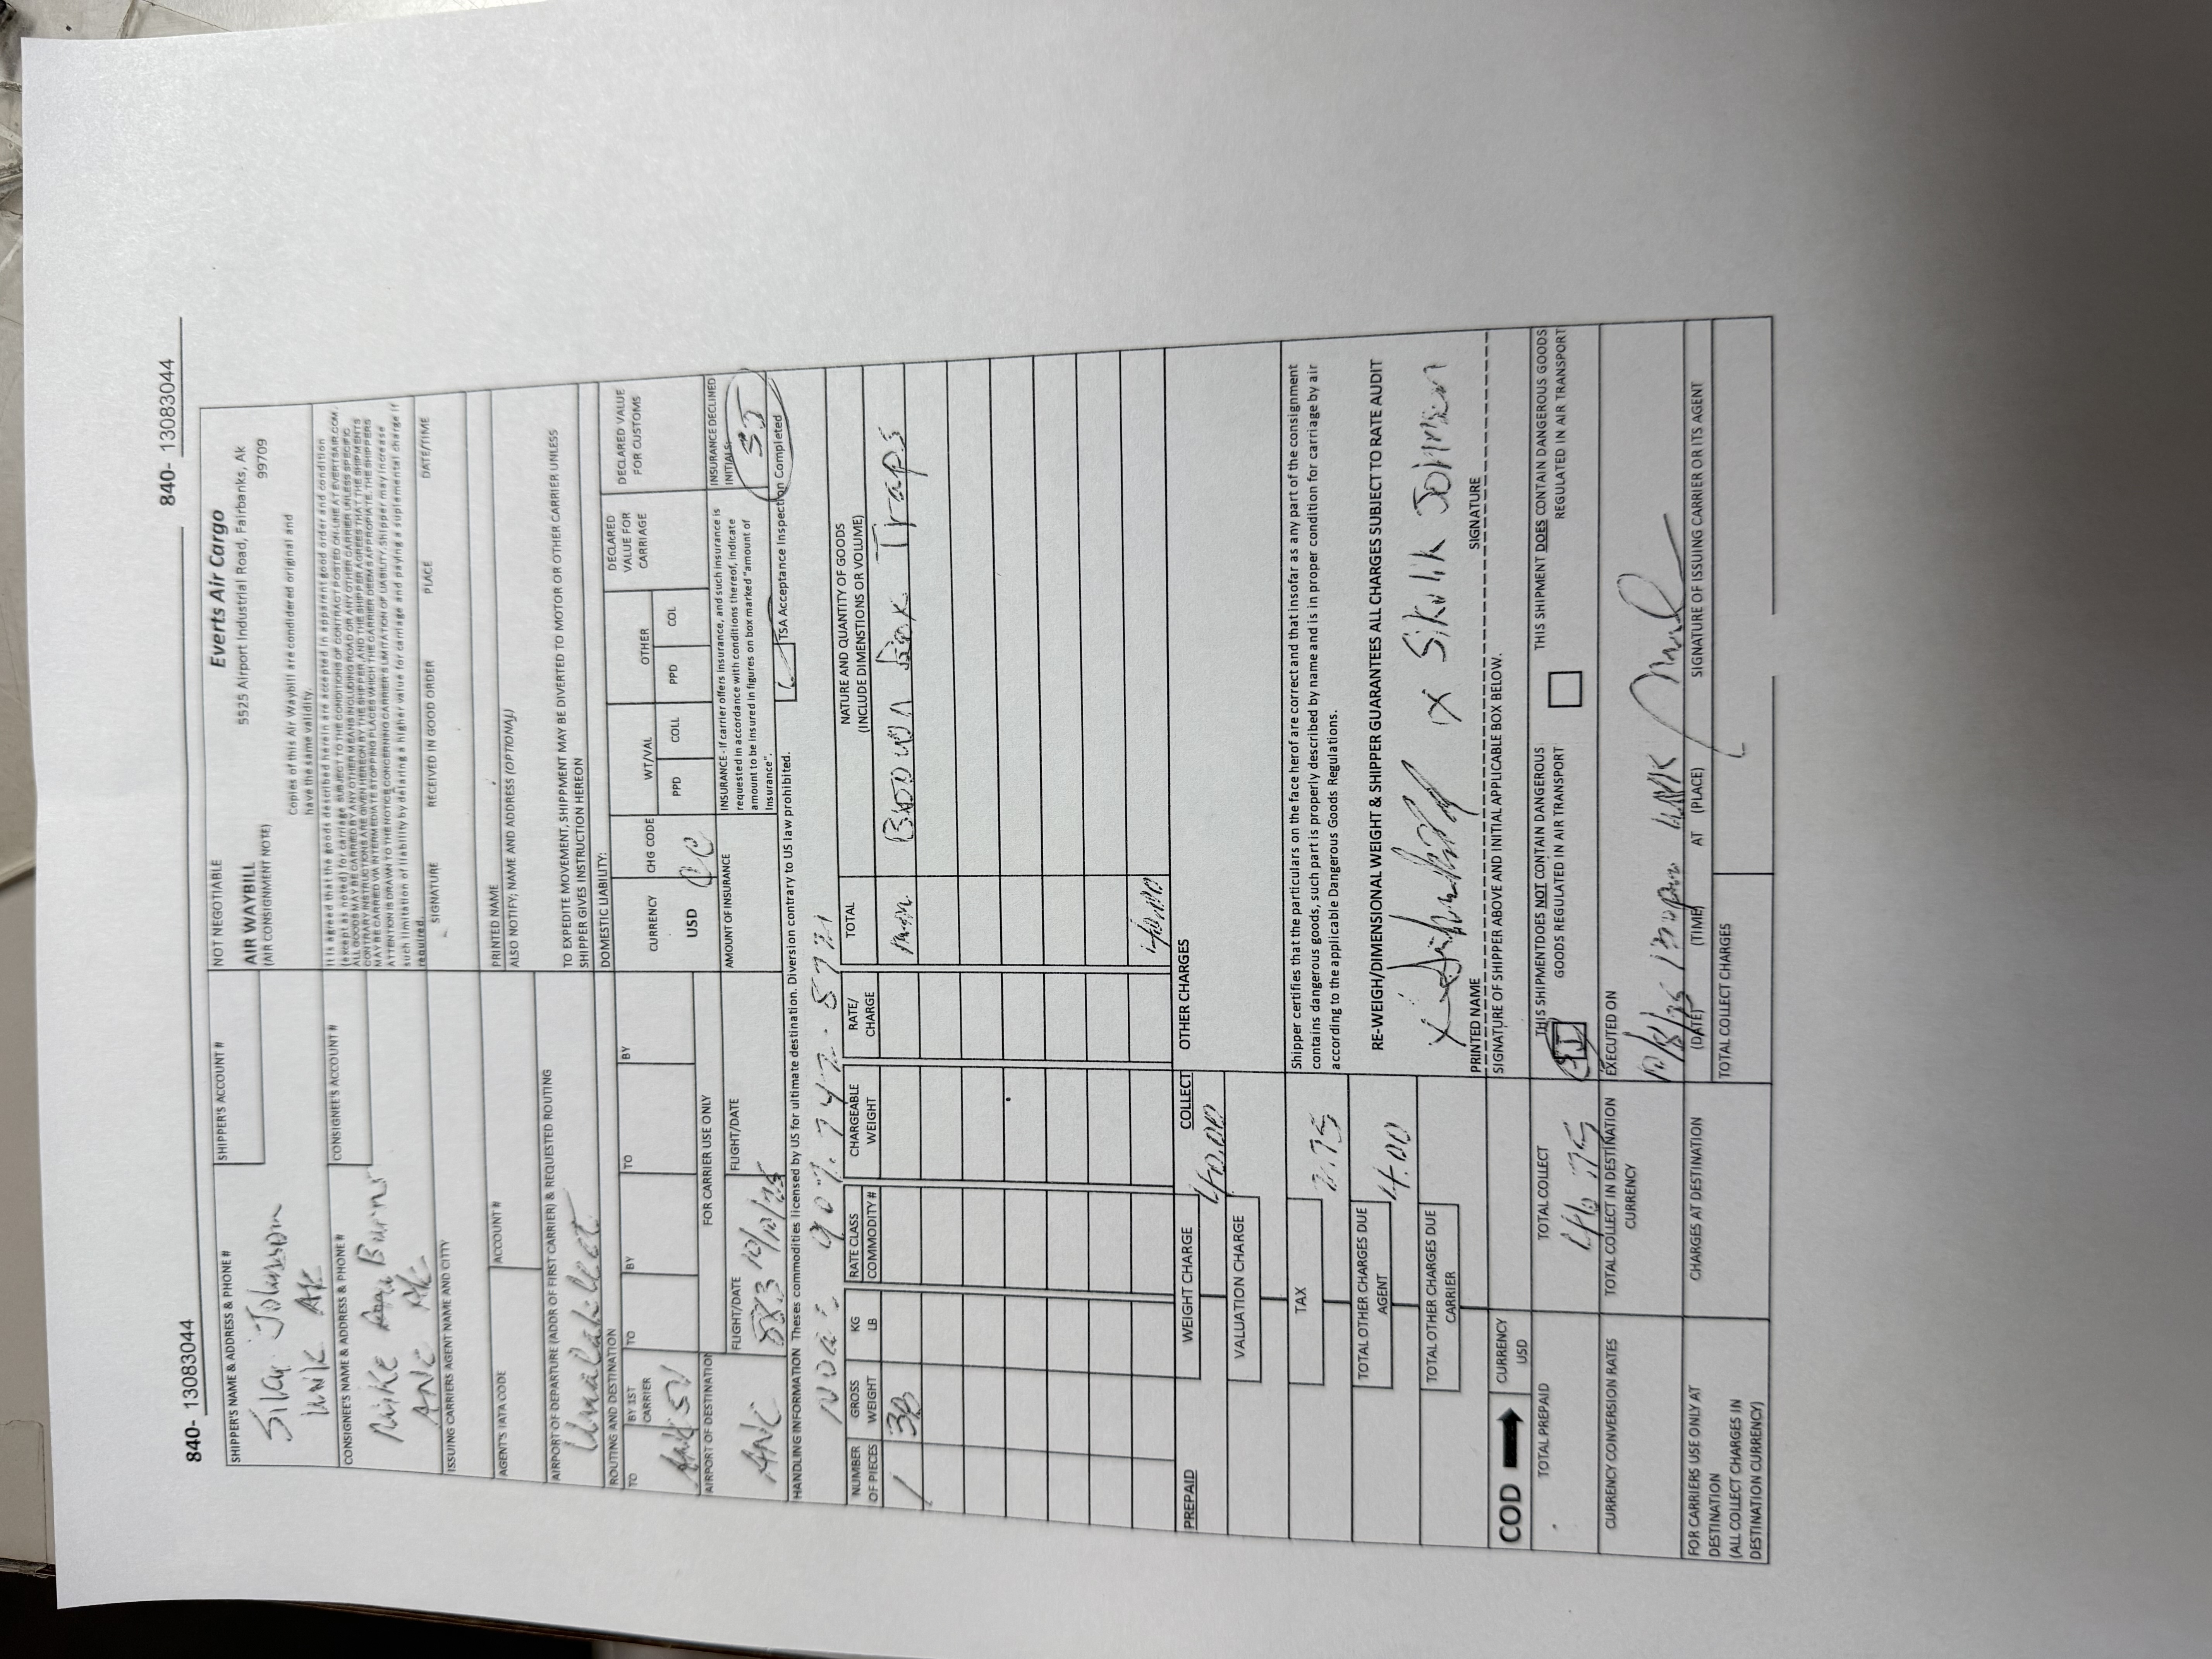 840- 13083044
840- 13083044
SHIPPER'S NAME & ADDRESS & PHONE #
SHIPPER'S ACCOUNT #
Johnson
UNK AK
NOT NEGOTIABLE
Everts Air Cargo
AIR WAYBILL
5525 Airport Industrial Road, Fairbanks, Ak
(AIR CONSIGNMENT NOTE)
99709
Copies of this Air Waybill are condidered original and
have the same validity.
CONSIGNEE'S NAME & ADDRESS & PHONE #
CONSIGNEE'S ACCOUNT #
Mike Burns
ANC AK
It is agreed that the goods described herein are accepted in apparent good order and condition
(except as noted) for carriage SUBJECT TO THE CONDITIONS OF CONTRACT POSTED ON LINE AT EVERTSAIR.COM.
ALL GOODS MAY BE CARRIED BY ANY OTHER MEANS INCLUDING ROAD OR ANY OTHER CARRIER UNLESS SPECIFIC
CONTRARY INSTRUCTIONS ARE GIVEN HEREON BY THE SHIPPER, AND THE SHIPPER AGREES THAT THE SHIPMENTS
MAY BE CARRIED VIA INTERMEDIATE STOPPING PLACES WHICH THE CARRIER DEEMS APPROPIATE. THE SHIPPERS
ATTENTION IS DRAWN TO THE NOTICE CONCERNING CARRIER'S LMITATION OF LIABILITY. Shipper may increase
such limitation of liability by delaring a higher value for carriage and paying a suplemental charge if
required.
SIGNATURE
RECEIVED IN GOOD ORDER
PLACE
DATE/TIME
ISSUING CARRIERS AGENT NAME AND CITY
PRINTED NAME
AGENT'S IATA CODE
ACCOUNT #
ALSO NOTIFY; NAME AND ADDRESS (OPTIONAL)
AIRPORT OF DEPARTURE (ADDR OF FIRST CARRIER) & REQUESTED ROUTING
Unalakleet
TO EXPEDITE MOVEMENT, SHIPPMENT MAY BE DIVERTED TO MOTOR OR OTHER CARRIER UNLESS
SHIPPER GIVES INSTRUCTION HEREON
ROUTING AND DESTINATION
DOMESTIC LIABILITY:
TO
BY 1ST CARRIER
TO
BY
TO
BY
5V
CURRENCY
CHG CODE
WT/VAL
OTHER
DECLARED VALUE FOR CARRIAGE
DECLARED VALUE FOR CUSTOMS
USD
CC
PPD
COLL
PPD
COL
AIRPORT OF DESTINATION
FOR CARRIER USE ONLY
ANC
FLIGHT/DATE
FLIGHT/DATE
AMOUNT OF INSURANCE
INSURANCE - If carrier offers insurance, and such insurance is
requested in accordance with conditions thereof, indicate
amount to be insured in figures on box marked "amount of
Insurance".
INSURANCE DECLINED
INITIALS:
SJ
HANDLING INFORMATION Theses commodities licensed by US for ultimate destination. Diversion contrary to US law prohibited.
TSA Acceptance Inspection Completed
907.
NUMBER OF PIECES
GROSS WEIGHT
KG LB
RATE CLASS COMMODITY #
CHARGEABLE WEIGHT
RATE/ CHARGE
TOTAL
NATURE AND QUANTITY OF GOODS
(INCLUDE DIMENSTIONS OR VOLUME)
1
min
Traps
40.00
PREPAID
WEIGHT CHARGE
COLLECT
OTHER CHARGES
40.00
VALUATION CHARGE
TAX
2.75
Shipper certifies that the particulars on the face herof are correct and that insofar as any part of the consignment
contains dangerous goods, such part is properly described by name and is in proper condition for carriage by air
according to the applicable Dangerous Goods Regulations.
TOTAL OTHER CHARGES DUE AGENT
4.00
RE-WEIGH/DIMENSIONAL WEIGHT & SHIPPER GUARANTEES ALL CHARGES SUBJECT TO RATE AUDIT
X
X
TOTAL OTHER CHARGES DUE CARRIER
PRINTED NAME
SIGNATURE
SIGNATURE OF SHIPPER ABOVE AND INITIAL APPLICABLE BOX BELOW.
COD
CURRENCY
USD
TOTAL PREPAID
TOTAL COLLECT
46.75
SJ
THIS SHIPMENTDOES NOT CONTAIN DANGEROUS
GOODS REGULATED IN AIR TRANSPORT
THIS SHIPMENT DOES CONTAIN DANGEROUS GOODS
REGULATED IN AIR TRANSPORT
CURRENCY CONVERSION RATES
TOTAL COLLECT IN DESTINATION CURRENCY
EXECUTED ON
UNK
(DATE)
(TIME)
AT
(PLACE)
SIGNATURE OF ISSUING CARRIER OR ITS AGENT
FOR CARRIERS USE ONLY AT
DESTINATION
(ALL COLLECT CHARGES IN
DESTINATION CURRENCY)
CHARGES AT DESTINATION
TOTAL COLLECT CHARGES